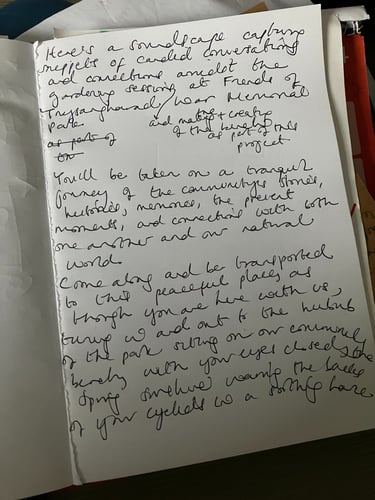 Here's a soundscape capturing
snippets of candid conversations
and connections amidst the
gardening sessions at Friends of
Ynysangharad / War Memorial
Park and making + creating
of the benches
as part of as part of this
project
You'll be taken on a tranquil
journey of the community's stories,
histories, memories, the present
moments, and connections with both
one another and our natural
world.
Come along and be transported
to this peaceful places as
though you are here with us,
tuning in and out to the hubub
of the park sitting on our community
bench with your eyes closed, the
Spring sunshine warming the backs
of your eyelids in a soothing haze